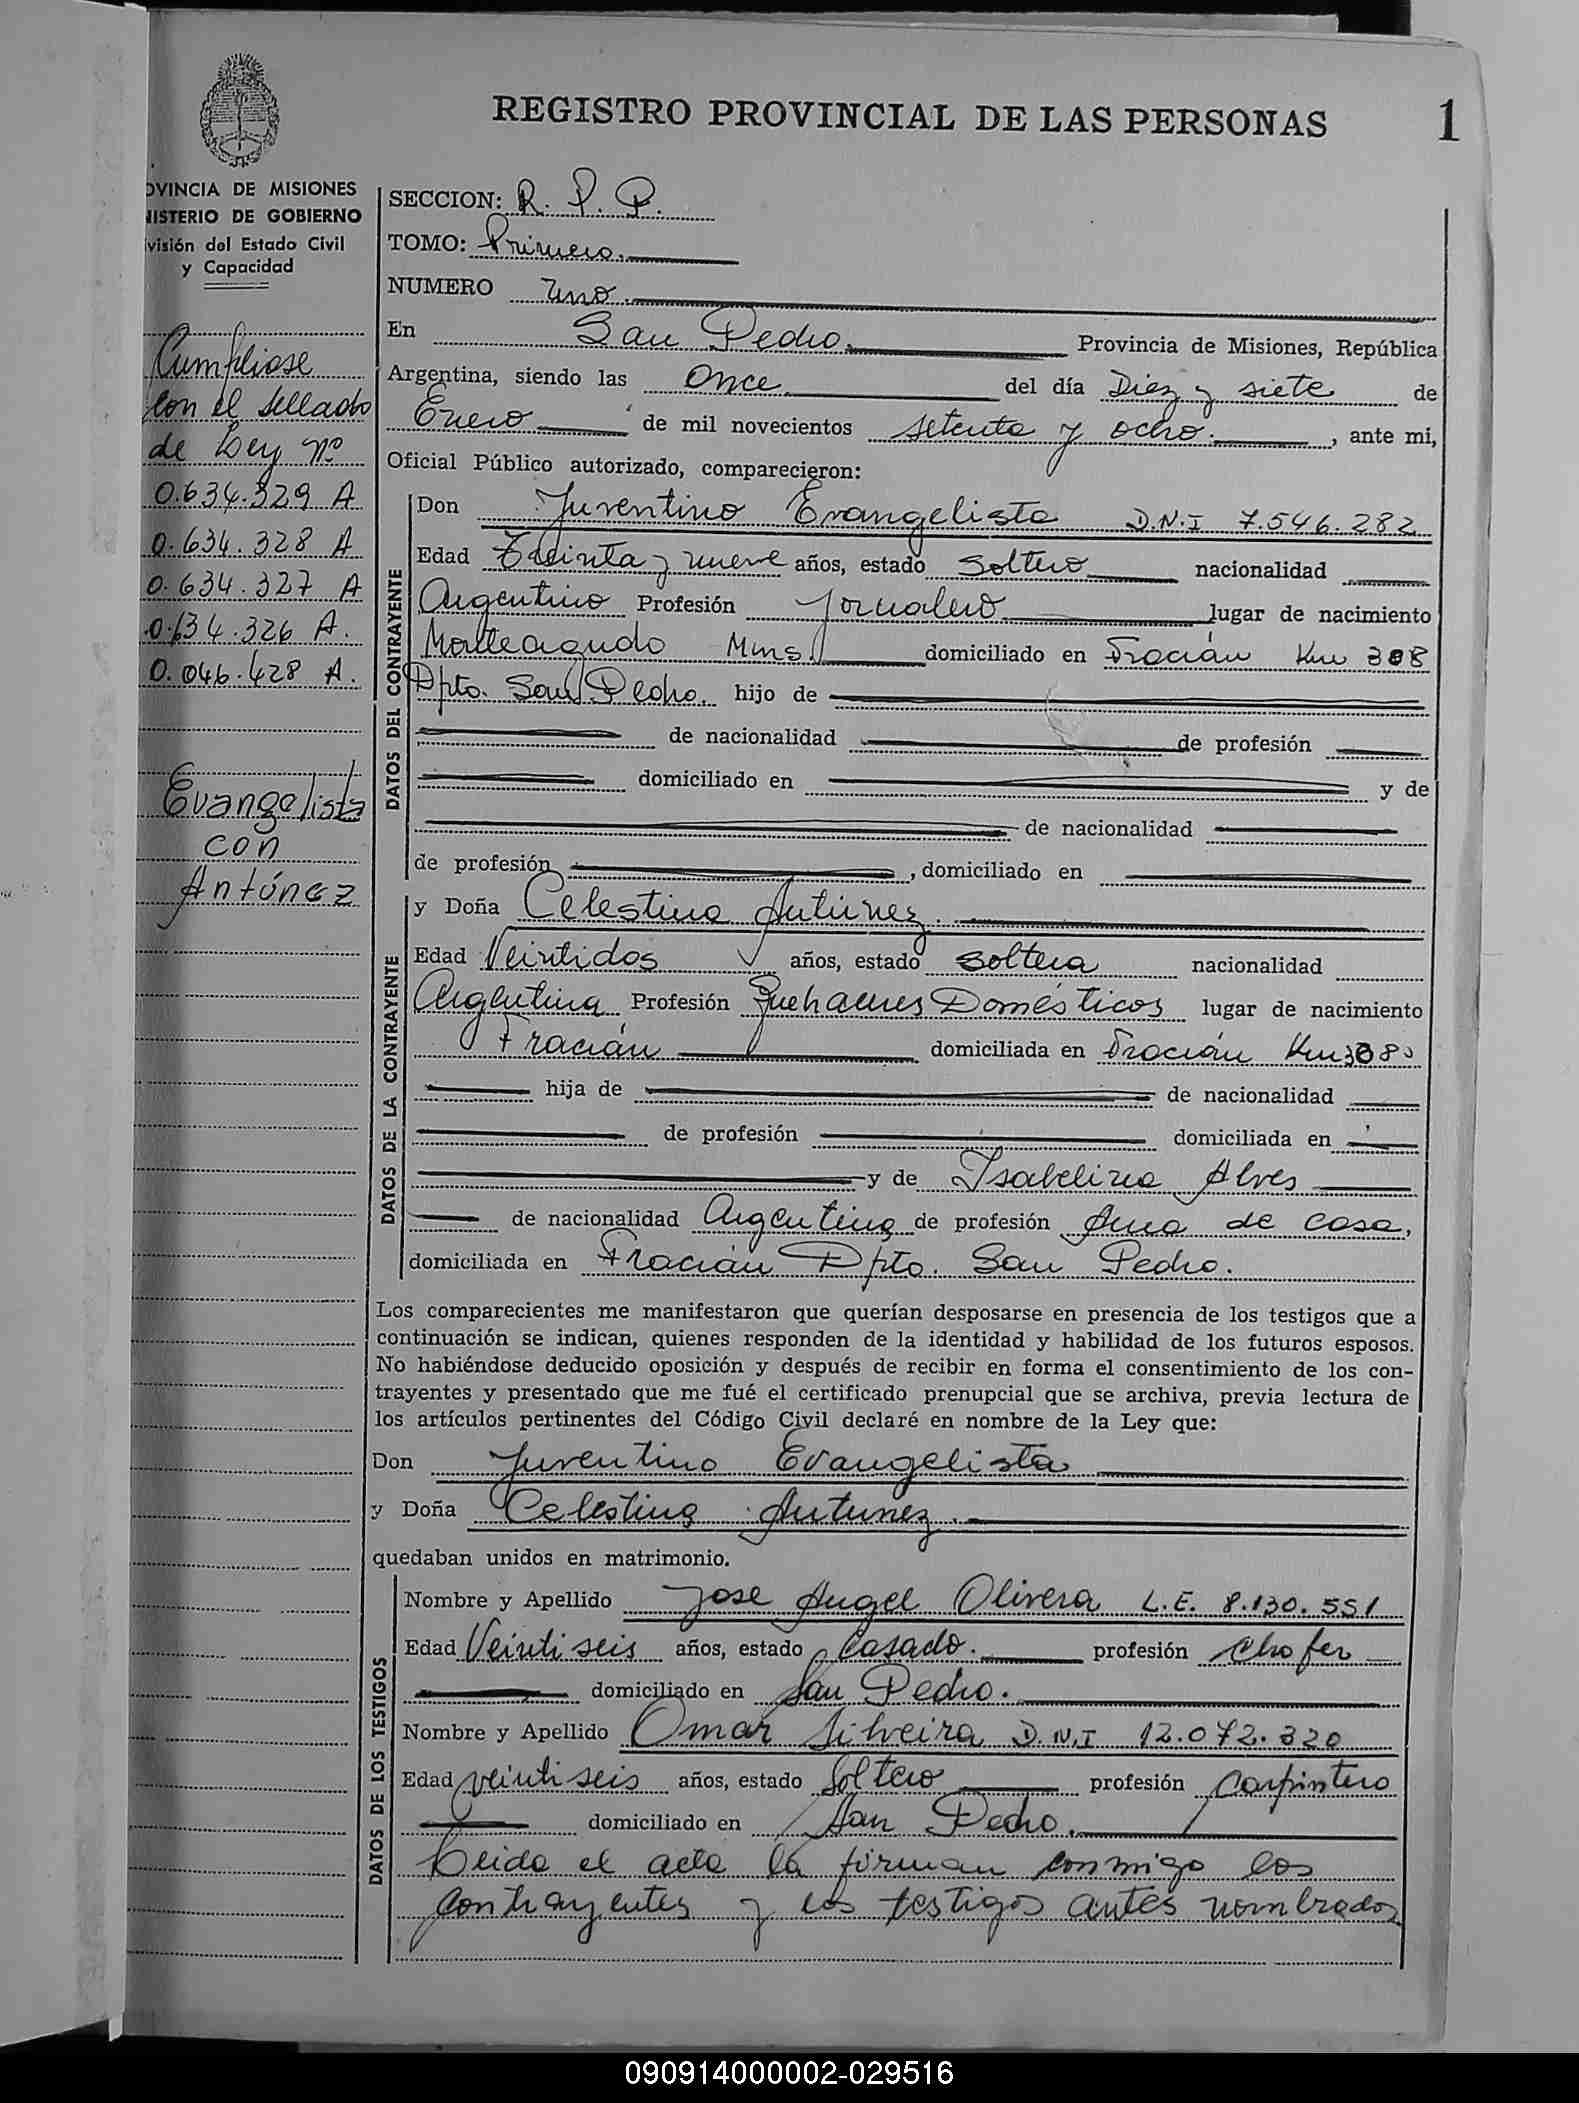 REGISTRO PROVINCIAL DE LAS PERSONAS 1
OVINCIA DE MISIONES
NISTERIO DE GOBIERNO
ivisión del Estado Civil
y Capacidad
Cumpliose
con el sellado
de Ley Nº
0.634.329 A
0.634.328 A
0.634.327 A
0.634.326 A.
0.046.428 A.
Evangelista
con
Antúnez
SECCION: R. P. P.
TOMO: Primero.
NUMERO Uno.
En San Pedro. Provincia de Misiones, República
Argentina, siendo las Once del día Diez y siete de
Enero de mil novecientos setenta y ocho. , ante mi,
Oficial Público autorizado, comparecieron:
DATOS DEL CONTRAYENTE
Don Juventino Evangelista D.N.I 7.546.282
Edad Treinta y nueve años, estado Soltero nacionalidad
Argentino Profesión Jornalero lugar de nacimiento
Monteagudo Mnes. domiciliado en Fracián Km 308
Dpto. San Pedro. hijo de
de nacionalidad de profesión
domiciliado en y de
de nacionalidad
de profesión , domiciliado en
DATOS DE LA CONTRAYENTE
y Doña Celestina Antúnez.
Edad Veintidos años, estado soltera nacionalidad
Argentina Profesión Quehaceres Domésticos lugar de nacimiento
Fracián domiciliada en Fracián Km 308
hija de de nacionalidad
de profesión domiciliada en
y de Isabelina Alves
de nacionalidad Argentina de profesión Ama de casa,
domiciliada en Fracián Dpto. San Pedro.
Los comparecientes me manifestaron que querían desposarse en presencia de los testigos que a
continuación se indican, quienes responden de la identidad y habilidad de los futuros esposos.
No habiéndose deducido oposición y después de recibir en forma el consentimiento de los con-
trayentes y presentado que me fué el certificado prenupcial que se archiva, previa lectura de
los artículos pertinentes del Código Civil declaré en nombre de la Ley que:
Don Juventino Evangelista
y Doña Celestina Antunez.
quedaban unidos en matrimonio.
DATOS DE LOS TESTIGOS
Nombre y Apellido Jose Angel Olivera L.E. 8.130.551
Edad Veintiseis años, estado Casado. profesión Chofer
domiciliado en San Pedro.
Nombre y Apellido Omar Silveira D.N.I 12.072.320
Edad veintiseis años, estado Soltero profesión Carpintero
domiciliado en San Pedro.
Leida el acta la firman conmigo los
contrayentes y los testigos antes nombrados
090914000002-029516